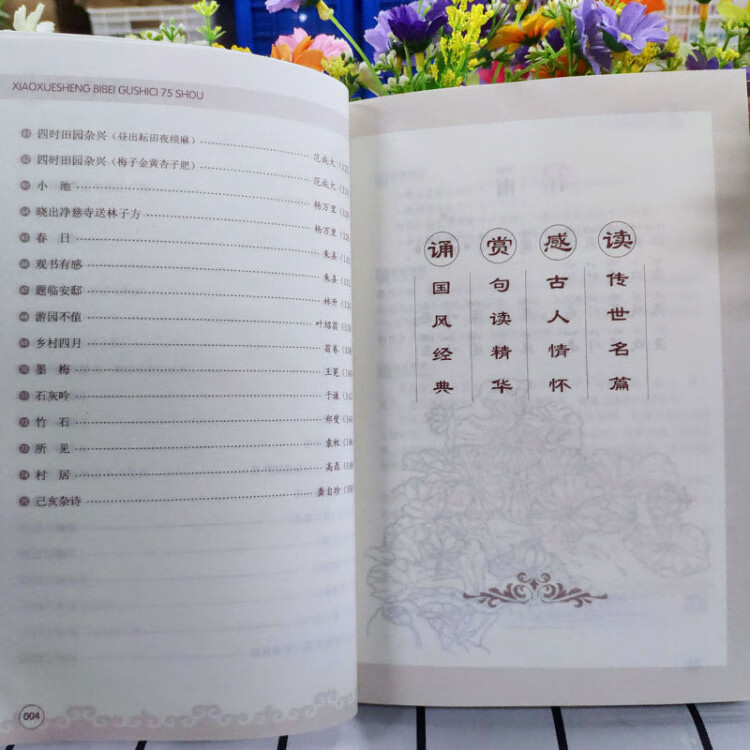 XIAOXUESHENG BIBEI GUSHICI 75 SHOU
61 四时田园杂兴（昼出耘田夜绩麻） 范成大
62 四时田园杂兴（梅子金黄杏子肥） 范成大
63 小池 杨万里
64 晓出净慈寺送林子方 杨万里
65 春日 朱熹
66 观书有感 朱熹
67 题临安邸 林升
68 游园不值 叶绍翁
69 乡村四月 翁卷
70 墨梅 王冕
71 石灰吟 于谦
72 竹石 郑燮
73 所见 袁枚
74 村居 高鼎
75 己亥杂诗 龚自珍
004
读传世名篇
感古人情怀
赏句读精华
诵国风经典